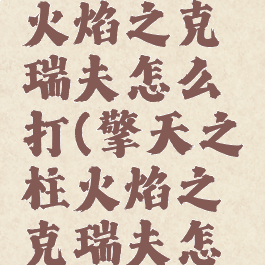 火焰之克
瑞夫怎么
打(擎天之
柱火焰之
克瑞夫怎